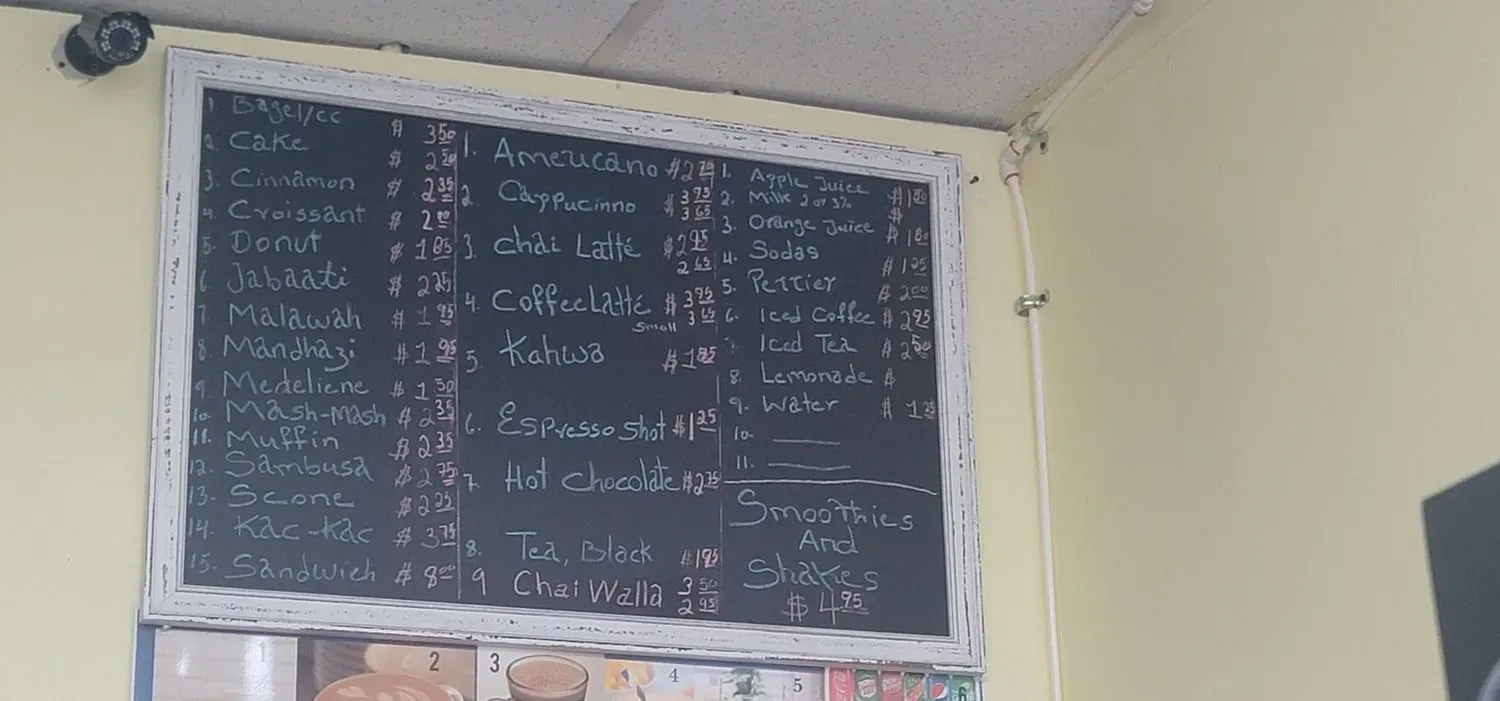 1. Bagel/cc $ 3.50
2. Cake $ 2.50
3. Cinnamon $ 2.35
4. Croissant $ 2.00
5. Donut $ 1.85
6. Jabaati $ 2.25
7. Malawah $ 1.95
8. Mandhazi $ 1.95
9. Medeliene $ 1.50
10. Mash-Mash $ 2.35
11. Muffin $ 2.35
12. Sambusa $ 2.75
13. Scone $ 2.25
14. Kac-Kac $ 3.75
15. Sandwich $ 8.00
1. Americano $2
2. Cappucinno $ 3.95
3.65
3. Chai Latté $2.95
2.65
4. Coffee Latté $ 3.95
Small 3.65
5. Kahwa $1.85
6. Espresso Shot $1.25
7. Hot Chocolate $2.75
8. Tea, Black $1.95
9 Chai Walla 3.50
2.95
1. Apple Juice $1.80
2. Milk 2 or 3% $
3. Orange Juice $ 1.80
4. Sodas $ 1.25
5. Perrier $ 2.00
6. Iced Coffee $ 2.95
Iced Tea $ 2.50
8. Lemonade $
9. Water $ 1.25
10.
11.
Smoothies
And
Shakes
$ 4.95
1
2
3
4
5
6